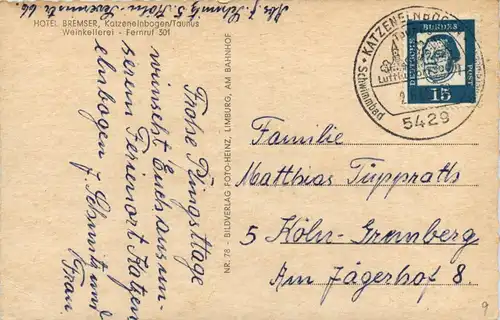 HOTEL BREMSER, Katzenelnbogen/Taunus
Weinkellerei - Fernruf 301
Abs. J. Schmitz 5 Köln-
Frohe Pfingsttage
wünscht Euch aus un-
serem Ferienort Katzen
elnbogen J. Schmitz und
Frau
NR. 78 - BILDVERLAG FOTO-HEINZ, LIMBURG, AM BAHNHOF
KATZENELNBOGEN
Schwimmbad
5429
DEUTSCHE
BUNDES
POST
15
Familie
Matthias Tüpprath
5 Köln-Gremberg
Am Jägerhof 8.
9